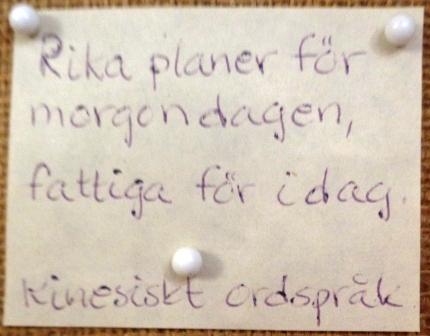 Rika planer för
morgondagen,
fattiga för idag.
Kinesiskt ordspråk